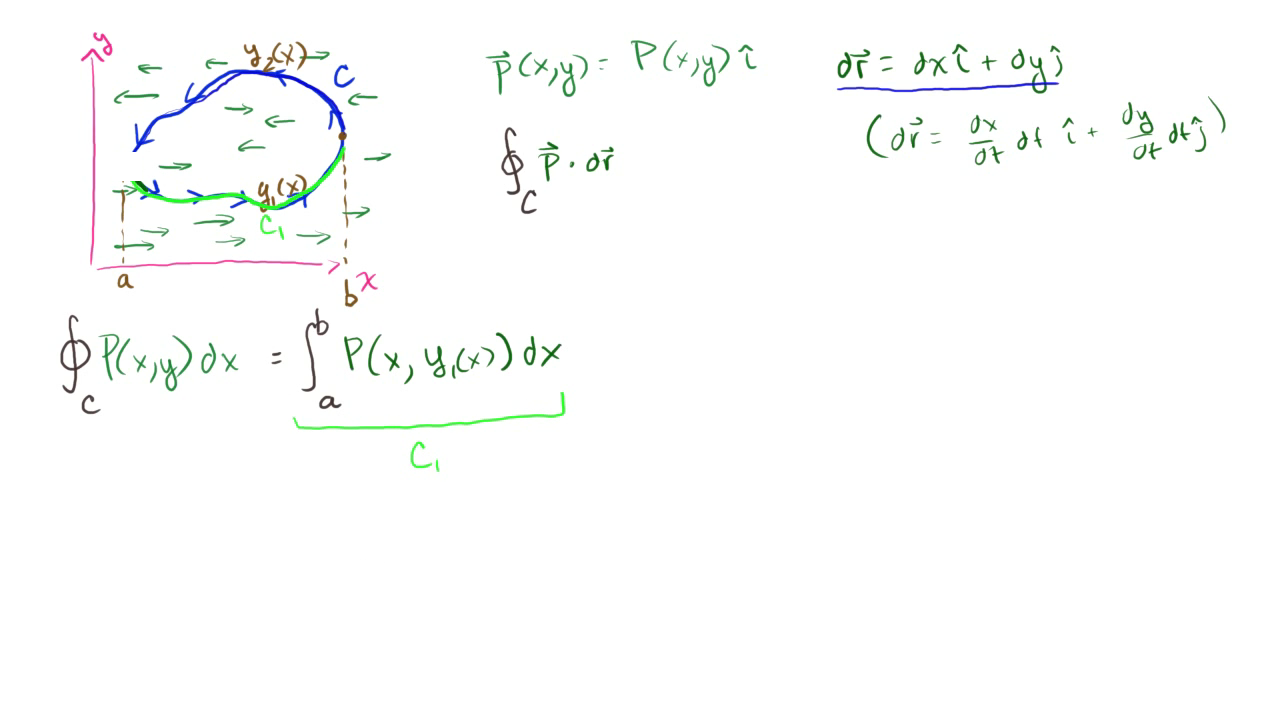 y
y₂(x)
C
y₁(x)
C₁
a
b
x
p⃗(x,y) = P(x,y) î
dr⃗ = dx î + dy ĵ
(dr⃗ = dx/dt dt î + dy/dt dt ĵ)
∮_C p⃗ · dr⃗
∮_C P(x,y) dx = ∫_a^b P(x, y₁(x)) dx
C₁